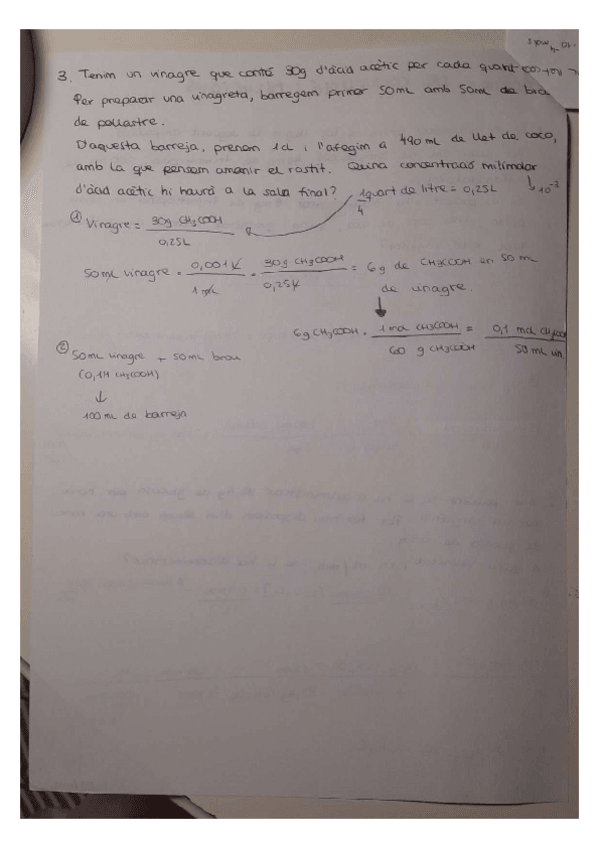 10⁻⁴ mols
3. Tenim un vinagre que conté 30g d'àcid acètic per cada quart
Per preparar una vinagreta, barregem primer 50mL amb 50mL de brou
de pollastre.
D'aquesta barreja, prenem 1cL i l'afegim a 490mL de llet de coco,
amb la que pensem amanir el rostit. Quina concentració milimolar
d'àcid acètic hi haurà a la salsa final? 1 quart de litre = 0,25L ↳ 10⁻³
4
① Vinagre = 30g CH₃COOH
0,25L
50mL vinagre · 0,001L · 30g CH₃COOH = 6g de CH₃COOH en 50mL
1mL 0,25L de vinagre.
↓
6g CH₃COOH · 1mol CH₃COOH = 0,1 mol CH₃COO
60 g CH₃COOH 50 mL vin
② 50mL vinagre + 50mL brou
(0,1M CH₃COOH)
↓
100mL de barreja